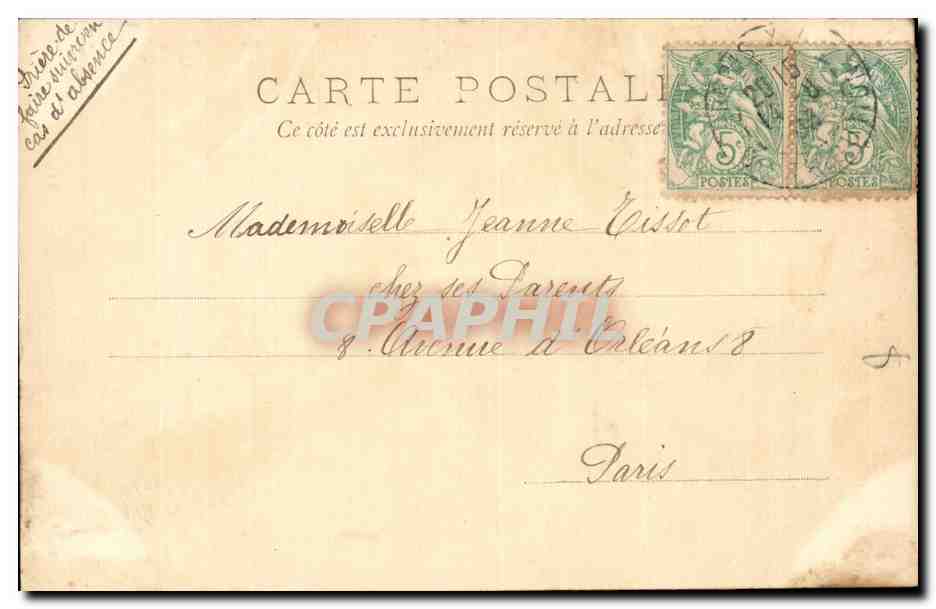 Prière de
faire suivre en
cas d'absence
CARTE POSTAL
Ce côté est exclusivement réservé à l'adresse
5c 5c
POSTES POSTES
Mademoiselle Jeanne Tissot
chez ses Parents
CPAPHIL
8. Avenue d'Orléans 8
8
Paris